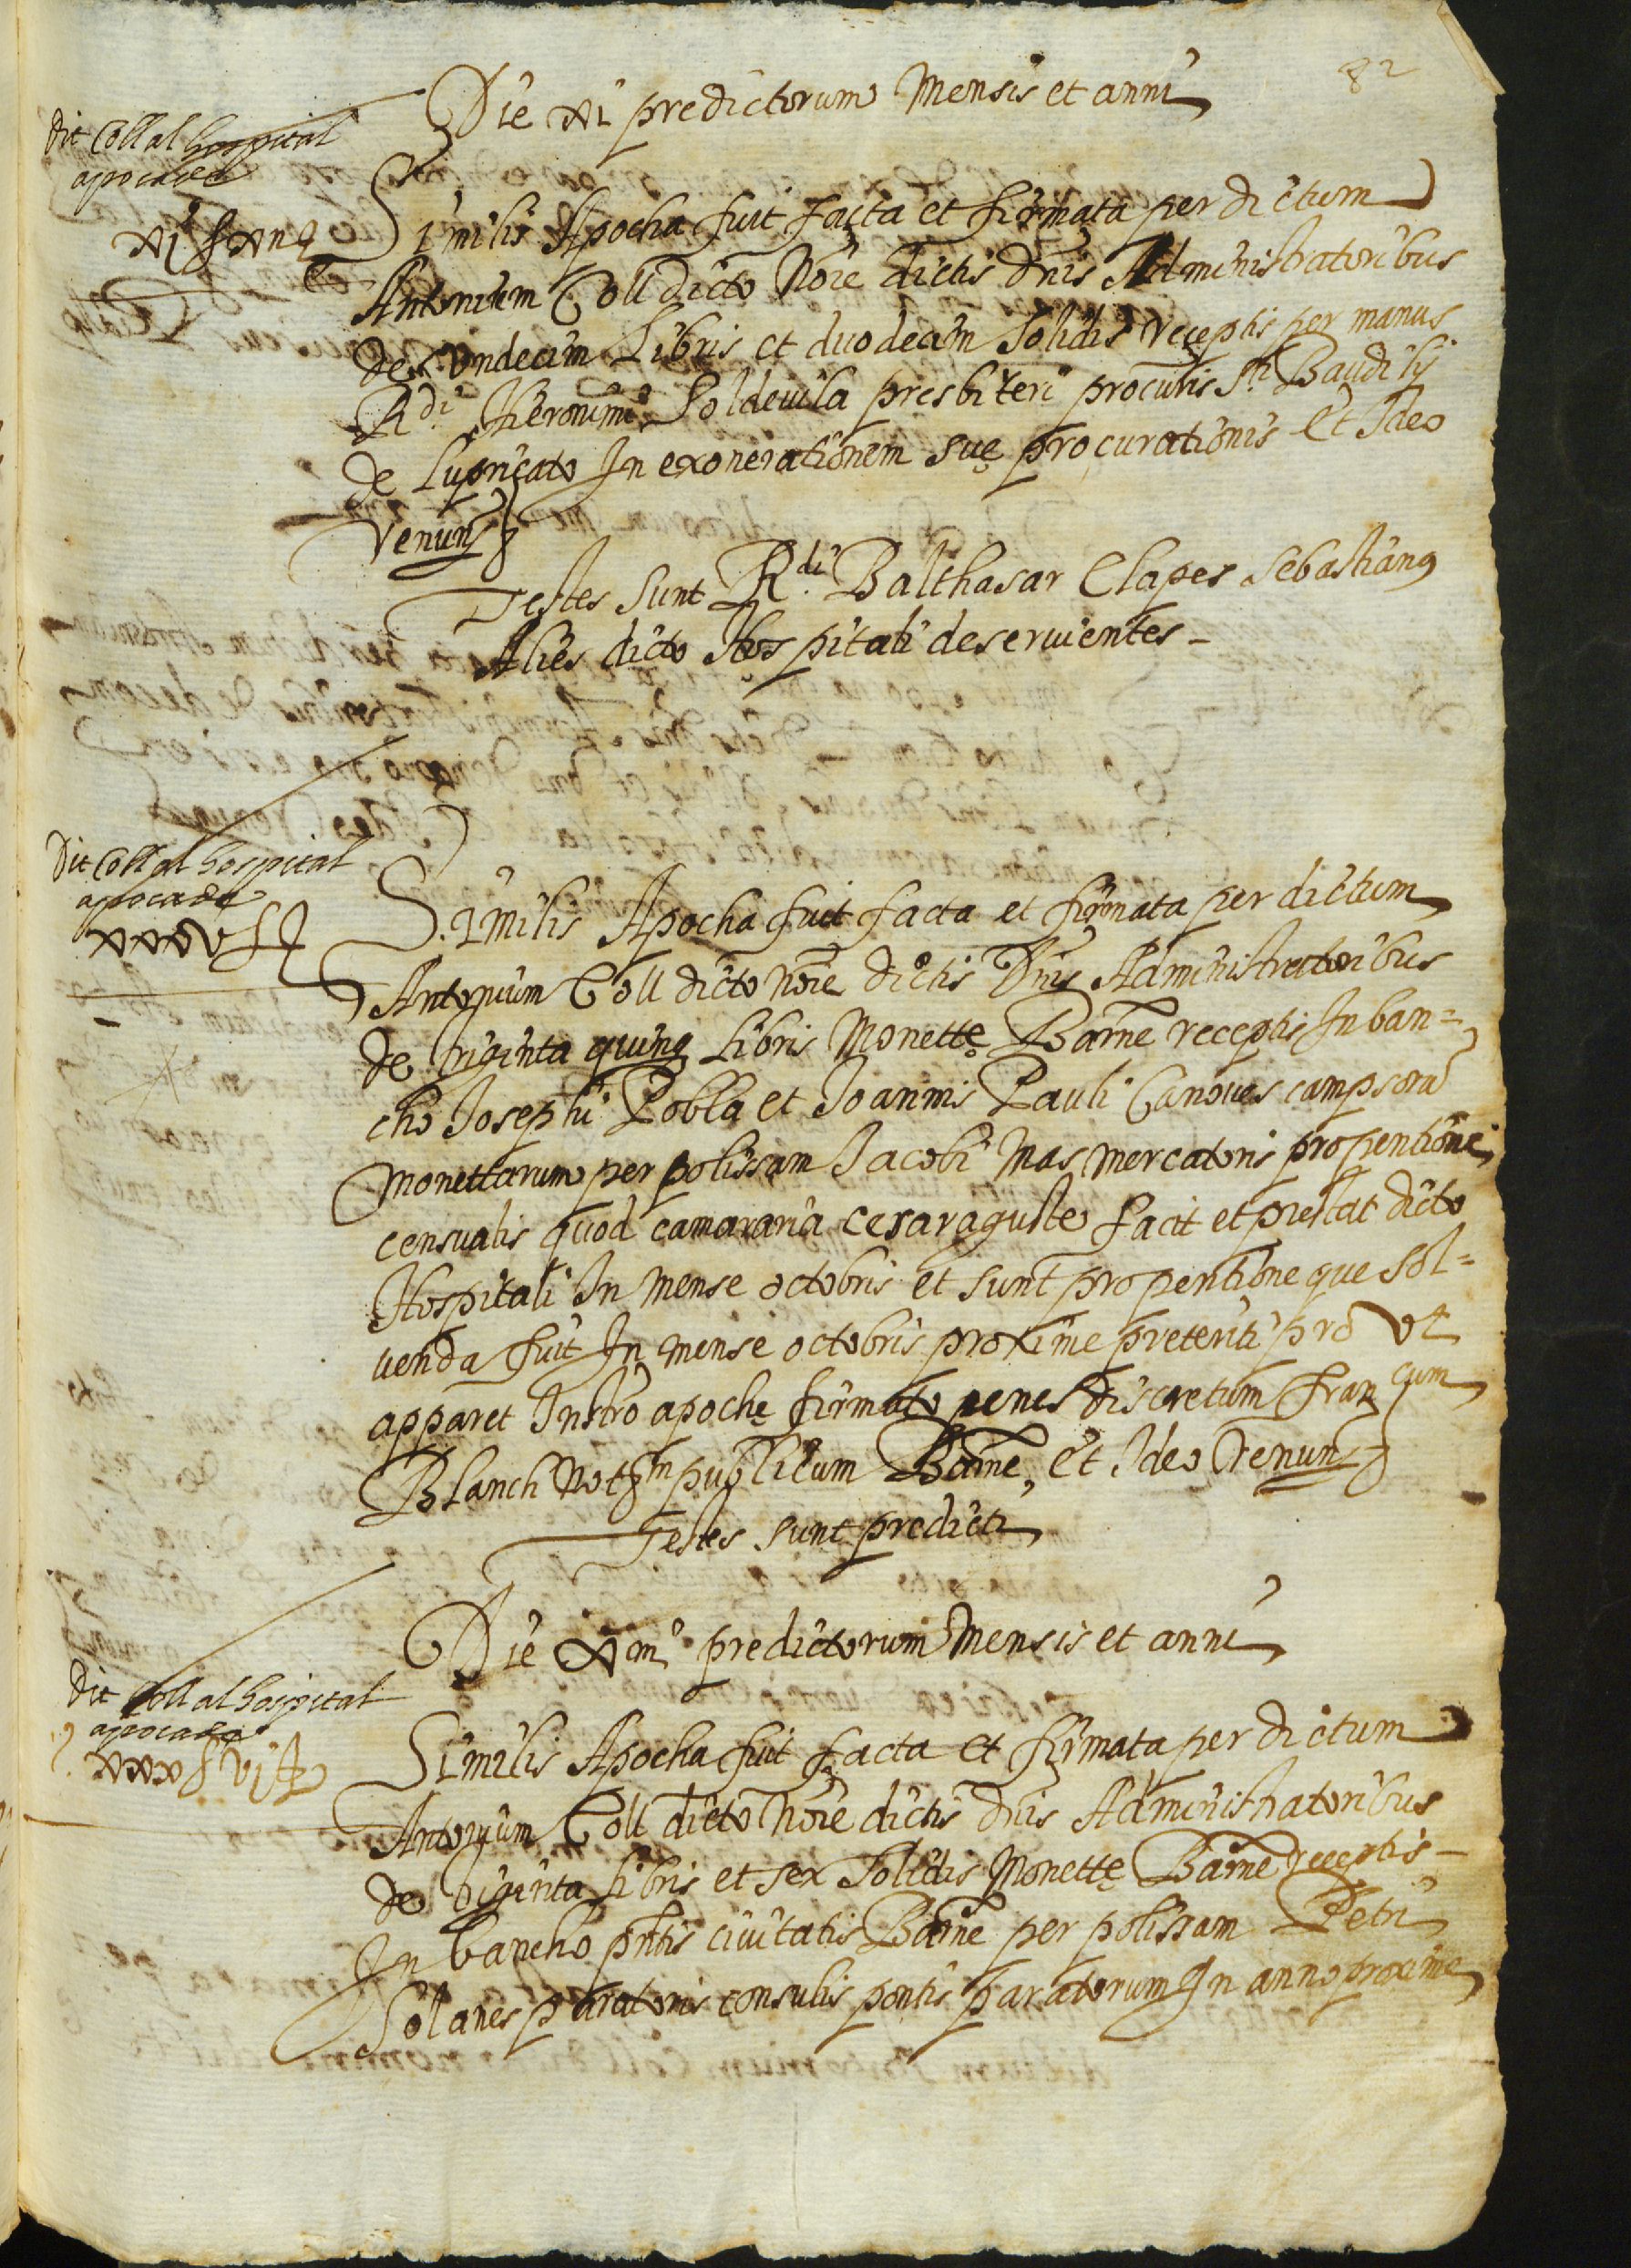 82
Die xi predictorum Mensis et anni
Dit Coll al hospital
apoca de
Similis Apocha fuit facta et firmata per dictum
Antonium Coll dicto Noīe dictis dnis Administratoribus
de Undecim Libris et duodecim Solidis receptis per manus
Rdi Hieronimi Soldevila presbiteri procuris Sti Baudilij
de Lupricato In exonerationem suę procurationis Et Ideo
renuns
Testes sunt Rdi Balthasar Clapes Sebastianq
Alies dicto Hospitali deseruientes –
Dit Coll al hospital
apoca de
xxxv ℔
Similis Apocha fuit facta et firmata per dictum
Antonium Coll dicto noīe dictis Dnis Administratoribus
de triginta quinq Libris Monettę Barne receptis In ban=
cho Josephi Pobla et Joannis Pauli Canoves campsorū
Monettarum per polissam Jacobi Mas mercatoris pro pentione
censualis quod camararia cesaraguste facit et prestat dicto
Hospitali In mense octobris et sunt pro pentione que sol=
uenda fuit In mense octobris proxime preteriti pro ut
apparet Instrō apochę firmato penes discretum Francum
Blanch Notm publicum Barne, Et Ideo renuns
Testes sunt predicti
Die predictorum Mensis et anni
Dit Coll al hospital
apoca de
Similis Apocha fuit facta et firmata per dictum
Antonium Coll dicto Noīe dictis dnis Administratoribus
de triginta Libris et sex Solidis Monettę Barne receptis –
In bancho pntis ciuitatis Barne per polissam Petri
Solanes paratoris consulis pontis paratorum In anno proxime